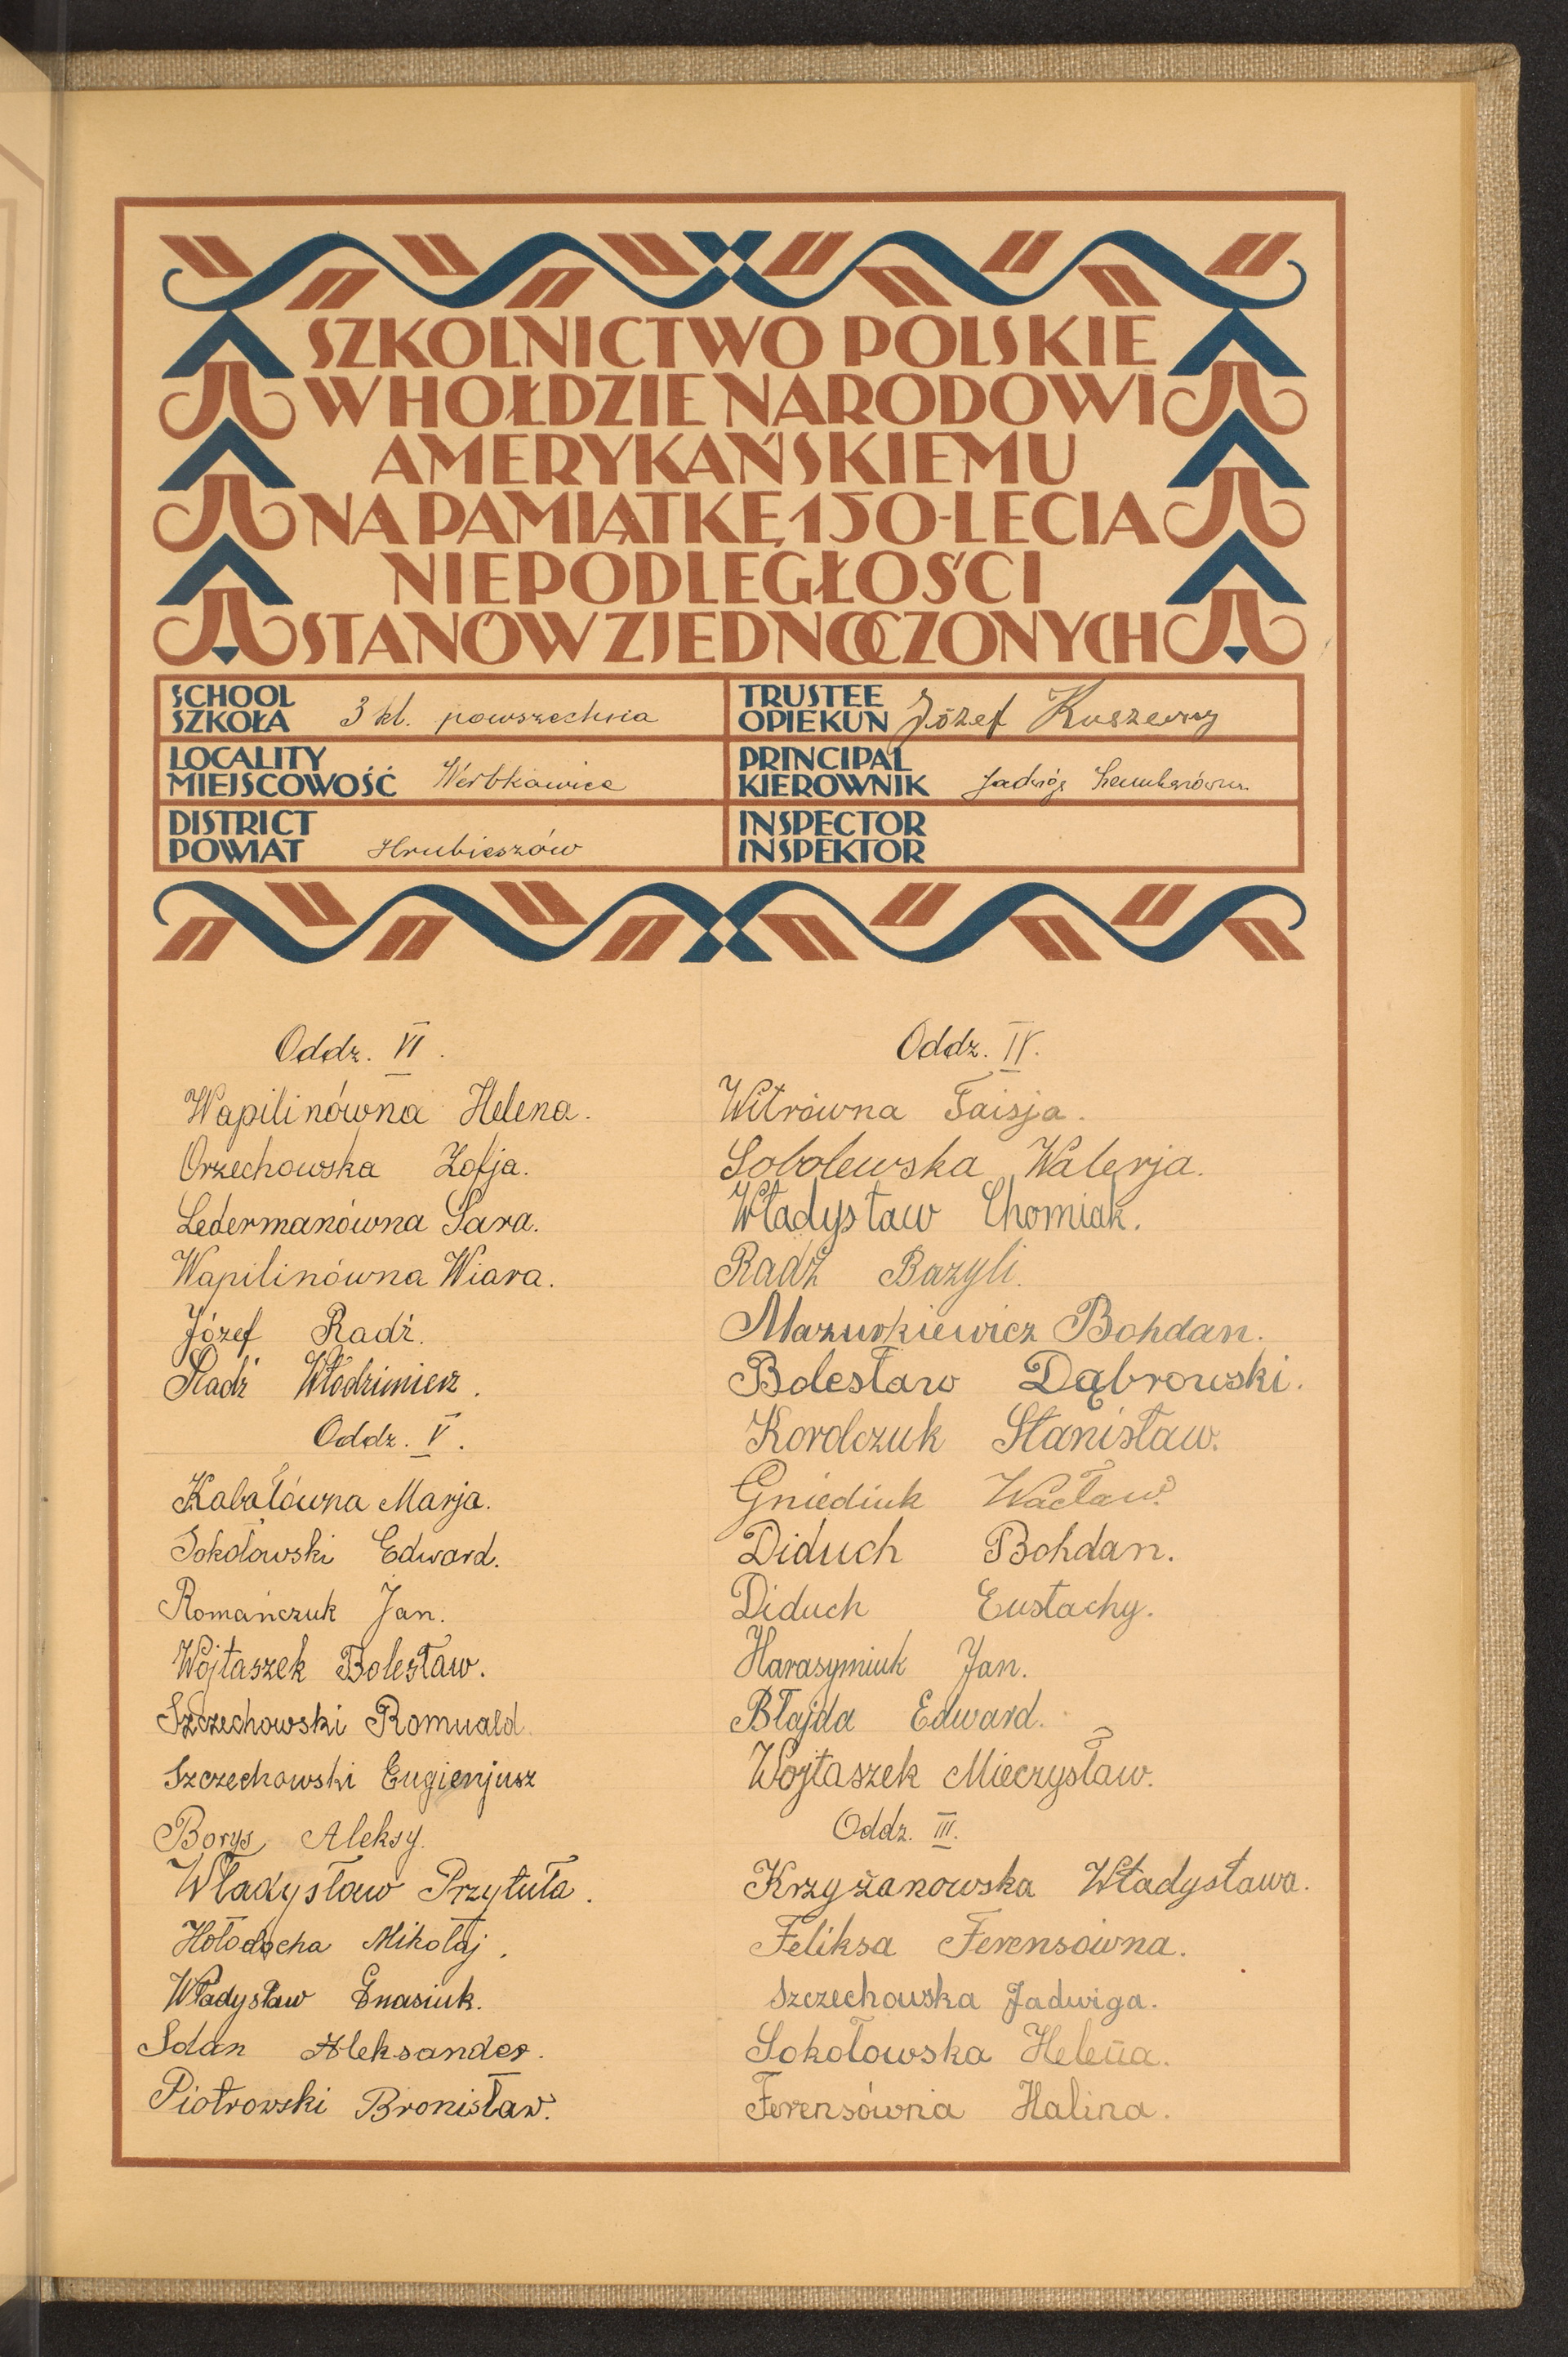 SZKOLNICTWO POLSKIE
W HOŁDZIE NARODOWI
AMERYKAŃSKIEMU
NA PAMIĄTKĘ 150-LECIA
NIEPODLEGŁOŚCI
STANÓW ZJEDNOCZONYCH
SCHOOL
SZKOŁA 3 kl. powszechna
TRUSTEE
OPIEKUN Józef
LOCALITY
MIEJSCOWOŚĆ Werbkowice
PRINCIPAL
KIEROWNIK
DISTRICT
POWIAT Hrubieszów
INSPECTOR
INSPEKTOR
Oddz. VI.
Wapilinówna Helena.
Orzechowska Zofja.
Ledermanówna Sara.
Wapilinówna Wiara.
Józef Radź.
Radź Włodzimierz.
Oddz. V.
Kabałówna Marja.
Sokołowski Edward.
Romańczuk Jan.
Wojtaszek Bolesław.
Szczechowski Romuald.
Szczechowski Eugienjusz
Borys Aleksy.
Władysław Przytuła.
Hołodocha Mikołaj.
Władysław Gnasiuk.
Sdan Aleksander.
Piotrowski Bronisław.
Oddz. IV.
Witrówna Taisja.
Sobolewska Walerja.
Władysław Chomiak.
Radź Bazyli.
Mazurkiewicz Bohdan.
Bolesław Dąbrowski.
Korolczuk Stanisław.
Gniediuk Wacław.
Diduch Bohdan.
Diduch Eustachy.
Harasymiuk Jan.
Błajda Edward.
Wojtaszek Mieczysław.
Oddz. III.
Krzyżanowska Władysława.
Feliksa Ferensówna.
Szczechowska Jadwiga.
Sokołowska Helena.
Ferensówna Halina.